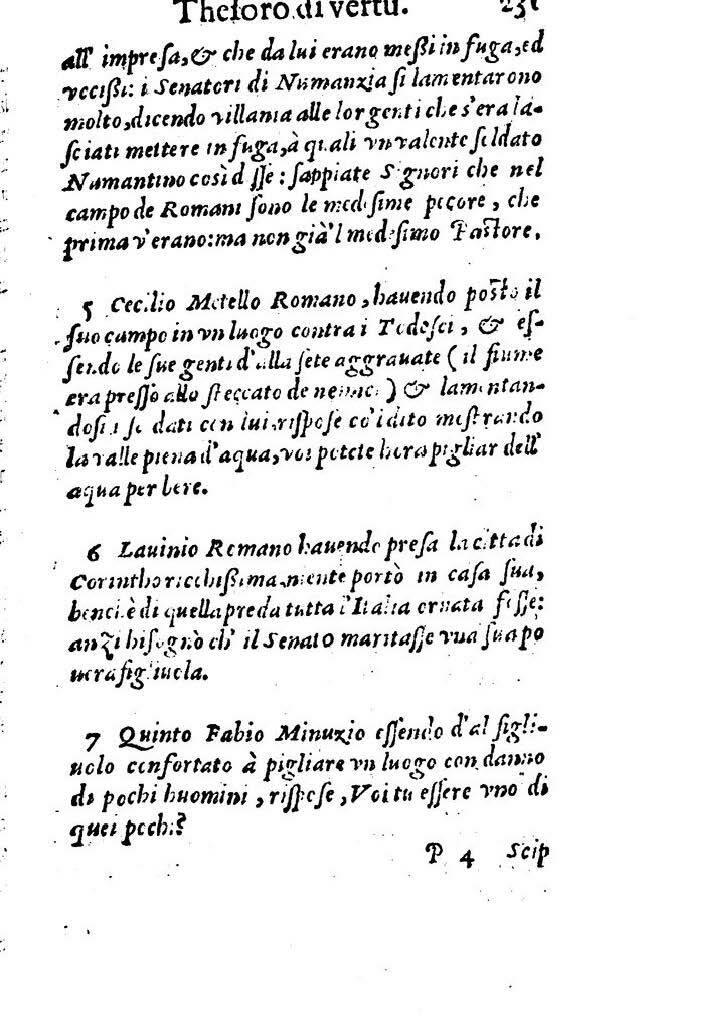 Thesoro di vertu. 231
all' impresa, & che da lui erano meßi in fuga, ed
vccißi: i Senatori di Numanzia si lamentarono
molto, dicendo villania alle lor genti che s'era la-
sciati mettere in fuga, à quali vn valente soldato
Numantino così disse: sappiate Signori che nel
campo de Romani sono le medesime pecore, che
prima v'erano: ma non già'l medesimo Pastore.
5 Cecilio Metello Romano, hauendo posto il
suo campo in vn luogo contra i Tedesci, & es-
sendo le sue genti d'alla sete aggrauate (il fiume
era presso allo steccato de nemici) & lamentan-
dosi i soldati con lui, rispose co'l dito mostrando
la valle piena d'aqua, voi potete hora pigliar dell'
aqua per bere.
6 Lauinio Romano hauendo presa la citta di
Corintho ricchißima, niente portò in casa sua,
benchè di quella preda tutta l'Italia ornata fosse:
anzi bisognò ch' il Senato maritasse vna sua po
uera figliuola.
7 Quinto Fabio Minuzio essendo d'al figli-
uolo confortato à pigliare vn luogo con danno
di pochi huomini, rispose, Voi tu essere vno di
quei pochi?
P 4 Scip